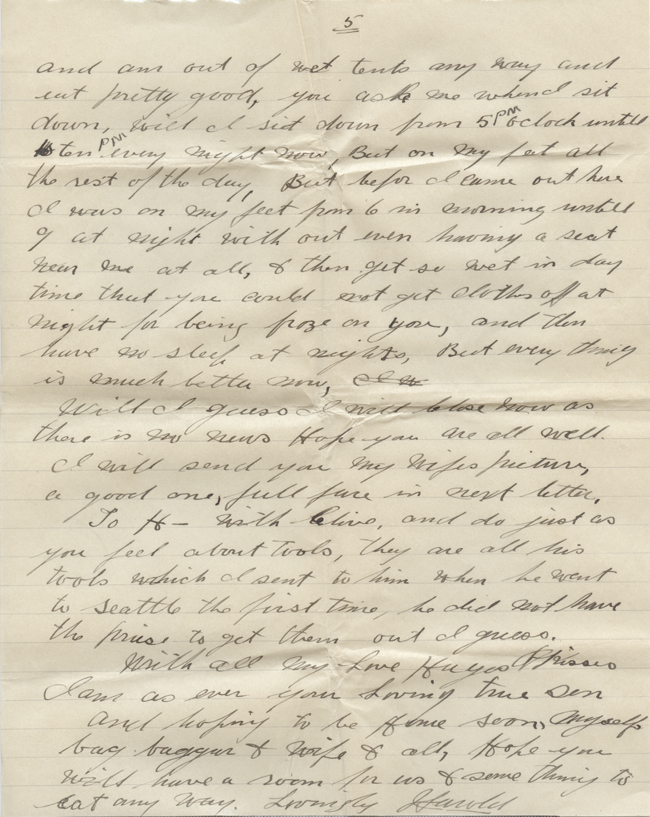 5
and am out of wet tents any way and
eat pretty good, you ask me when I sit
down, will I sit down from 5 PM oclock untill
ten PM every night now, But on my feet all
the rest of the day, But befor I came out here
I was on my feet from 6 in morning untill
9 at night with out even having a seat
near me at all, & then get so wet in day
time that you could not get cloths off at
night for being froze on you, and then
have no sleep at nights, But every thing
is much better now,
Will I guess I will close now as
there is no news Hope you are all well.
I will send you my wifes picture,
a good one, full face in next letter.
To H— with Clive, and do just as
you feel about tools, they are all his
tools which I sent to him when he went
to Seattle the first time, he did not have
the price to get them out I guess.
With all my Love Hugs & Kisses
I am as ever your Loving true son
and hoping to be Home soon, myself
bag baggar & wife & all, Hope you
will have a room for us & some thing to
Eat any way. Lovingly Harold